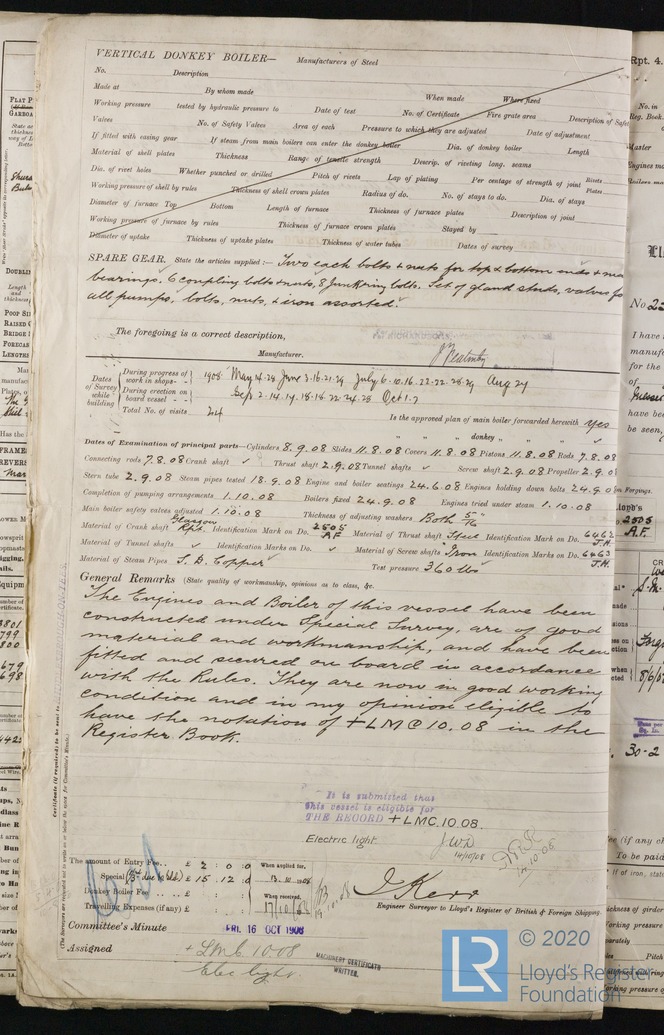 VERTICAL DONKEY BOILER— Manufacturers of Steel
No. Description
Made at By whom made When made Where fixed
Working pressure tested by hydraulic pressure to Date of test No. of Certificate Fire grate area Description of Safety
Valves No. of Safety Valves Area of each Pressure to which they are adjusted Date of adjustment
If fitted with easing gear If steam from main boilers can enter the donkey boiler Dia. of donkey boiler Length
Material of shell plates Thickness Range of tensile strength Descrip. of riveting long. seams
Dia. of rivet holes Whether punched or drilled Pitch of rivets Lap of plating Per centage of strength of joint Rivets Plates
Working pressure of shell by rules Thickness of shell crown plates Radius of do. No. of stays to do. Dia. of stays
Diameter of furnace Top Bottom Length of furnace Thickness of furnace plates Description of joint
Working pressure of furnace by rules Thickness of furnace crown plates Stayed by
Diameter of uptake Thickness of uptake plates Thickness of water tubes Dates of survey
SPARE GEAR. State the articles supplied:— Two each bolts & nuts for top & bottom ends & ma
bearings, 6 coupling bolts & nuts, 8 Junk ring bolts. Set of gland studs, valves fo
all pumps, bolts, nuts, & iron assorted.
The foregoing is a correct description,
Manufacturer.
Dates of Survey while building
During progress of work in shops - - 1908. May 14. 29 June 3. 16. 21. 29 July 6. 10. 16. 22. 22. 28. 29 Aug 27
During erection on board vessel - - Sep 2. 14. 17. 18. 18. 22. 24. 28 Oct 1. 7
Total No. of visits 24
Is the approved plan of main boiler forwarded herewith yes
" " " donkey " " "
Dates of Examination of principal parts—Cylinders 8.9.08 Slides 11.8.08 Covers 11.8.08 Pistons 11.8.08 Rods 7.8.08
Connecting rods 7.8.08 Crank shaft ✓ Thrust shaft 2.9.08 Tunnel shafts ✓ Screw shaft 2.9.08 Propeller 2.9.08
Stern tube 2.9.08 Steam pipes tested 18.9.08 Engine and boiler seatings 24.6.08 Engines holding down bolts 24.9.08
Completion of pumping arrangements 1.10.08 Boilers fixed 24.9.08 Engines tried under steam 1.10.08
Main boiler safety valves adjusted 1.10.08 Thickness of adjusting washers Both 5/16"
Material of Crank shaft Glasgow Rpt. Identification Mark on Do. 2505 AF Material of Thrust shaft Steel Identification Mark on Do. 6462 J.H.
Material of Tunnel shafts ✓ Identification Marks on Do. ✓ Material of Screw shafts Iron Identification Marks on Do. 6463 J.H.
Material of Steam Pipes S. D. Copper Test pressure 360 lbs
General Remarks (State quality of workmanship, opinions as to class, &c.
The Engines and Boiler of this vessel have been
constructed under Special Survey, are of good
material and workmanship, and have been
fitted and secured on board in accordance
with the Rules. They are now in good working
condition and in my opinion eligible to
have the notation of +LMC 10.08 in the
Register Book.
It is submitted that
this vessel is eligible for
THE RECORD +LMC.10.08.
Electric light.
J.W.D.
14/10/08
The amount of Entry Fee.. £ 2 : 0 : 0 When applied for.
Special £ 15 . 12 : 0 13.10.1908
Donkey Boiler Fee £ : : When received.
Travelling Expenses (if any) £ : : 17/10/08
J Kerr
Engineer Surveyor to Lloyd's Register of British & Foreign Shipping.
Committee's Minute FRI. 16 OCT 1908
Assigned + LMC 10.08
Elec light.
MACHINERY CERTIFICATE
WRITTEN.
LR
© 2020
Lloyd's Register
Foundation